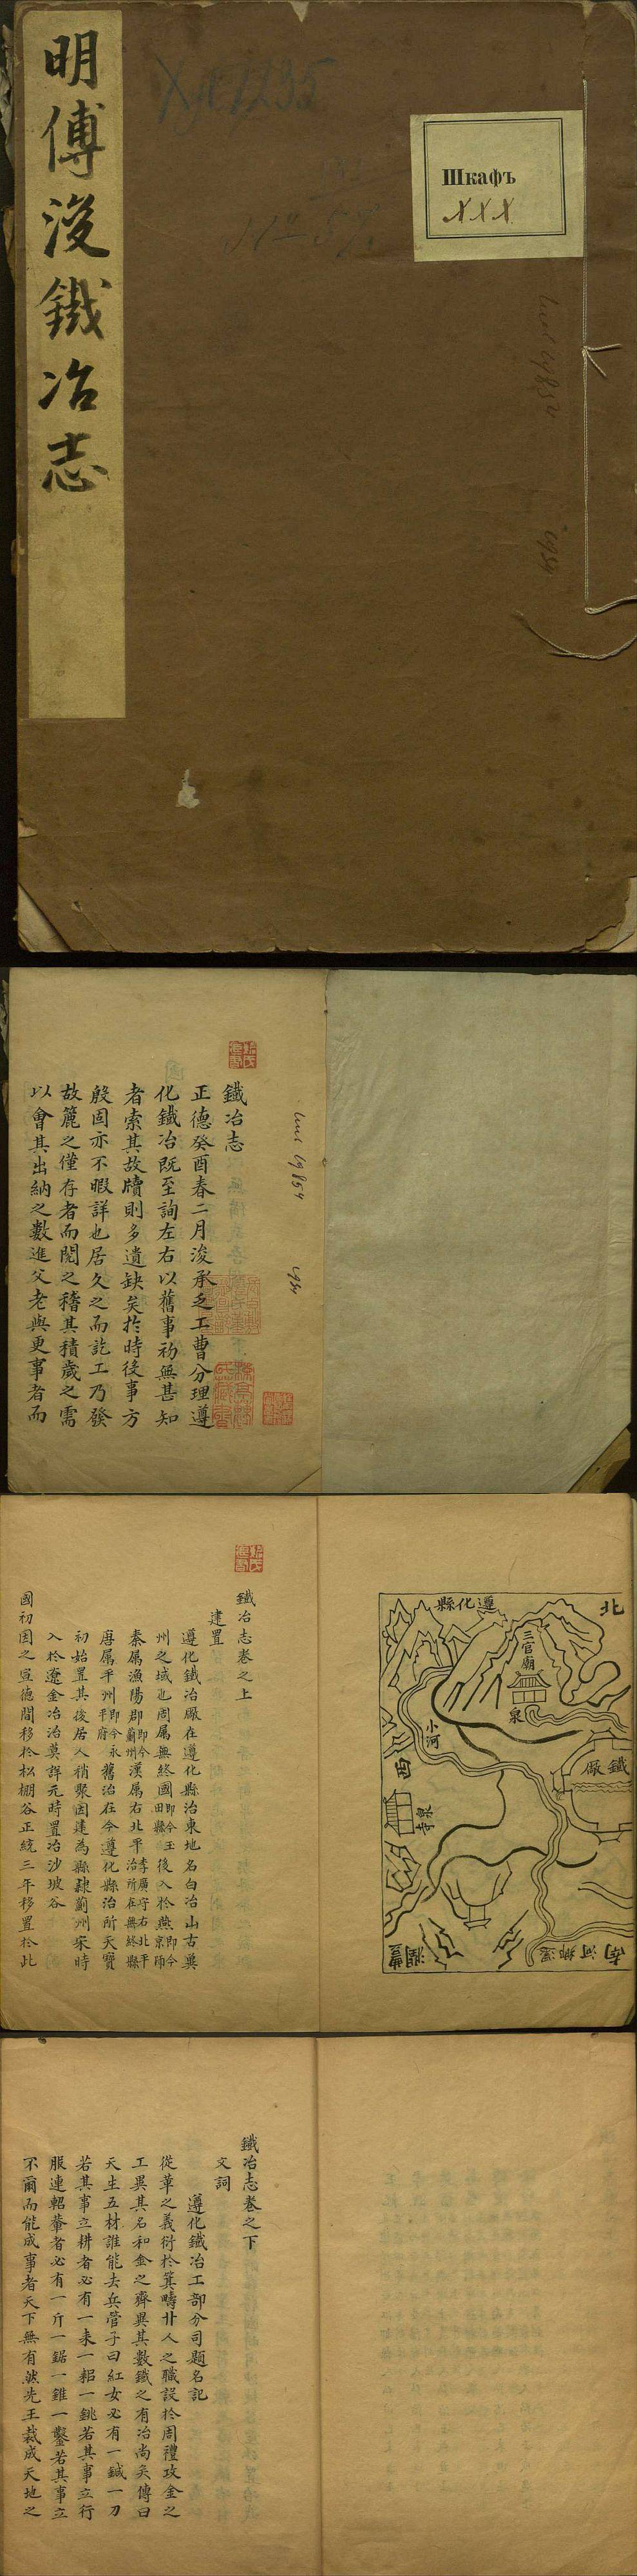 明傅浚鐵冶志
Шкафъ
XXX
鐵冶志
正德癸酉春二月浚承乏工曹分理遵
化鐵冶既至詢左右以舊事初無甚知
者索其故牘則多遺缺矣於時役事方
殷固亦不暇詳也居久之而訖工乃發
故簏之僅存者而閱之稽其積歲之需
以會其出納之數進父老與更事者而
北
遵化縣
三官廟
泉
小河
鐵廠
西
泉寺
南
河鄉還
豐潤
鐵冶志卷之上
建置
遵化鐵冶廠在遵化縣治東地名白冶山古冀
州之域也周屬無終國即今玉田縣後入於燕即今京師
秦屬漁陽郡即今薊州漢屬右北平李廣守右北平治所在無終縣
唐屬平州即今永平府舊治在今遵化縣治所天寶
初始置其後居人稍聚因建為縣隸薊州宋時
入於遼金冶治莫詳元時置冶沙坡谷
國初因之宣德間移於松棚谷正統三年移置於此
鐵冶志卷之下
文詞
遵化鐵冶工部分司題名記
從革之義衍於箕疇卝人之職設於周禮攻金之
工異其名和金之齊異其數鐵之有冶尚矣傳曰
天生五材誰能去兵管子曰紅女必有一鍼一刀
若其事立耕者必有一耒一耜一銚若其事立行
服連軺輂者必有一斤一鋸一錐一鑿若其事立
不爾而能成事者天下無有然先王裁成天地之